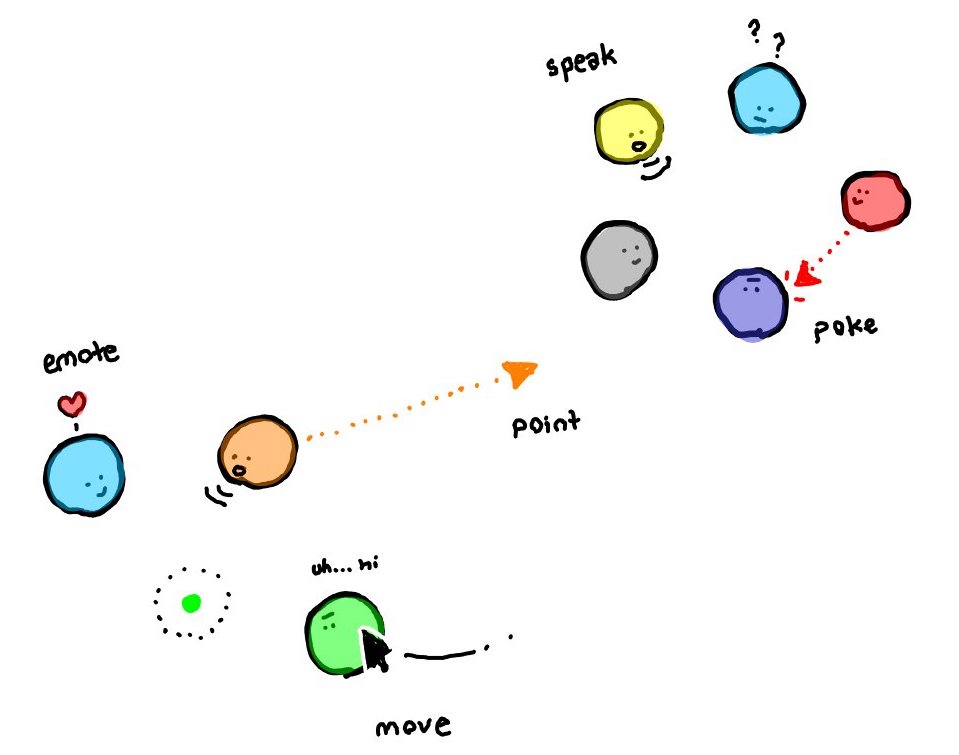 ? ?
speak
poke
emote
point
uh... hi
move